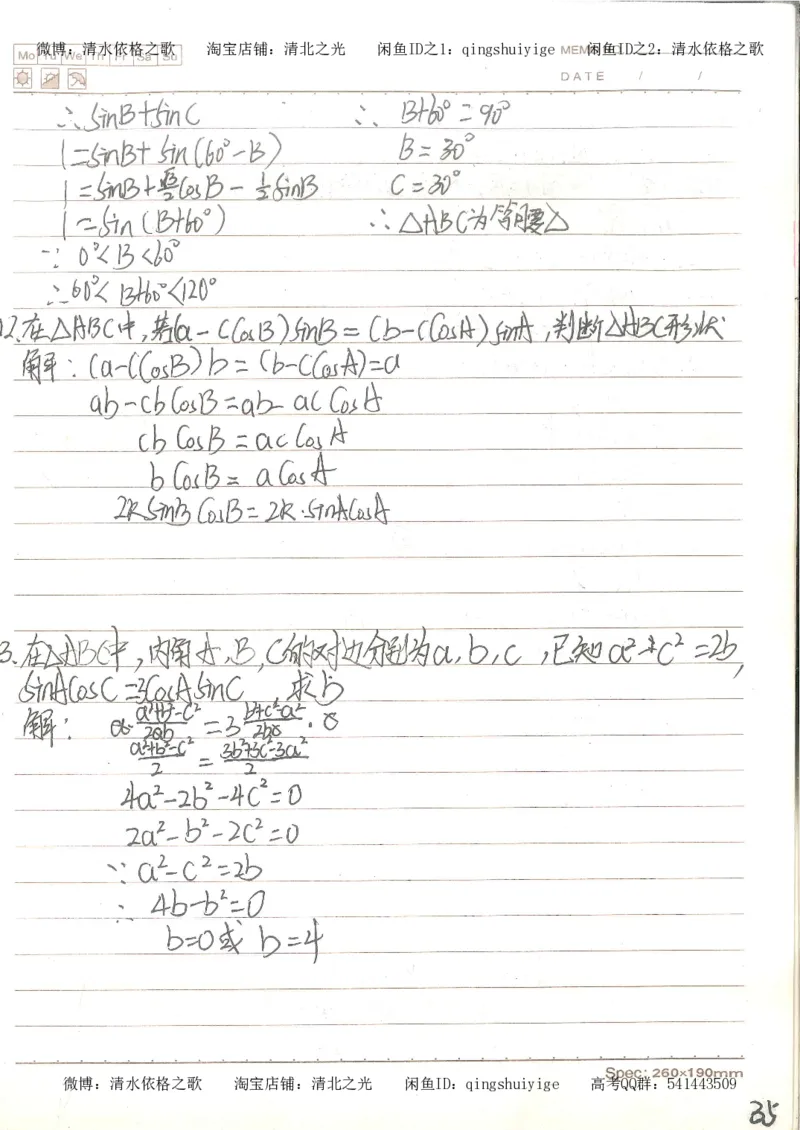 微博：清水依格之歌 淘宝店铺：清北之光 闲鱼ID之1：qingshuiyige 闲鱼ID之2：清水依格之歌
Mo Tu We Th Fr Sa Su
DATE / /
∴ SinB+SinC ∴ B+60°=90°
1=SinB+Sin(60°-B) B=30°
1=SinB+√3/2CosB-1/2SinB C=30°
1=Sin(B+60°) ∴△ABC为等腰△
∵ 0°<B<60°
∴60°<B+60°<120°
12.在△ABC中,若(a-CCosB)SinB=(b-CCosA)sinA,判断△ABC形状
解：(a-CCosB)b=(b-CCosA)=a
ab-cbCosB=ab-acCosA
cbCosB=acCosA
bCosB=aCosA
2RSinBCosB=2R·SinACosA
3.在△ABC中,内角A,B,C的对边分别为a,b,c,已知a²-c²=2b,
SinACosC=3CosASinC,求b
解： a·(a²+b²-c²)/2ab=3(b²+c²-a²)/2bc·c
(a²+b²-c²)/2=(3b²+3c²-3a²)/2
4a²-2b²-4c²=0
2a²-b²-2c²=0
∵a²-c²=2b
∴ 4b-b²=0
b=0或b=4
Spec: 260×190mm
微博：清水依格之歌 淘宝店铺：清北之光 闲鱼ID：qingshuiyige 高考QQ群：541443509
35